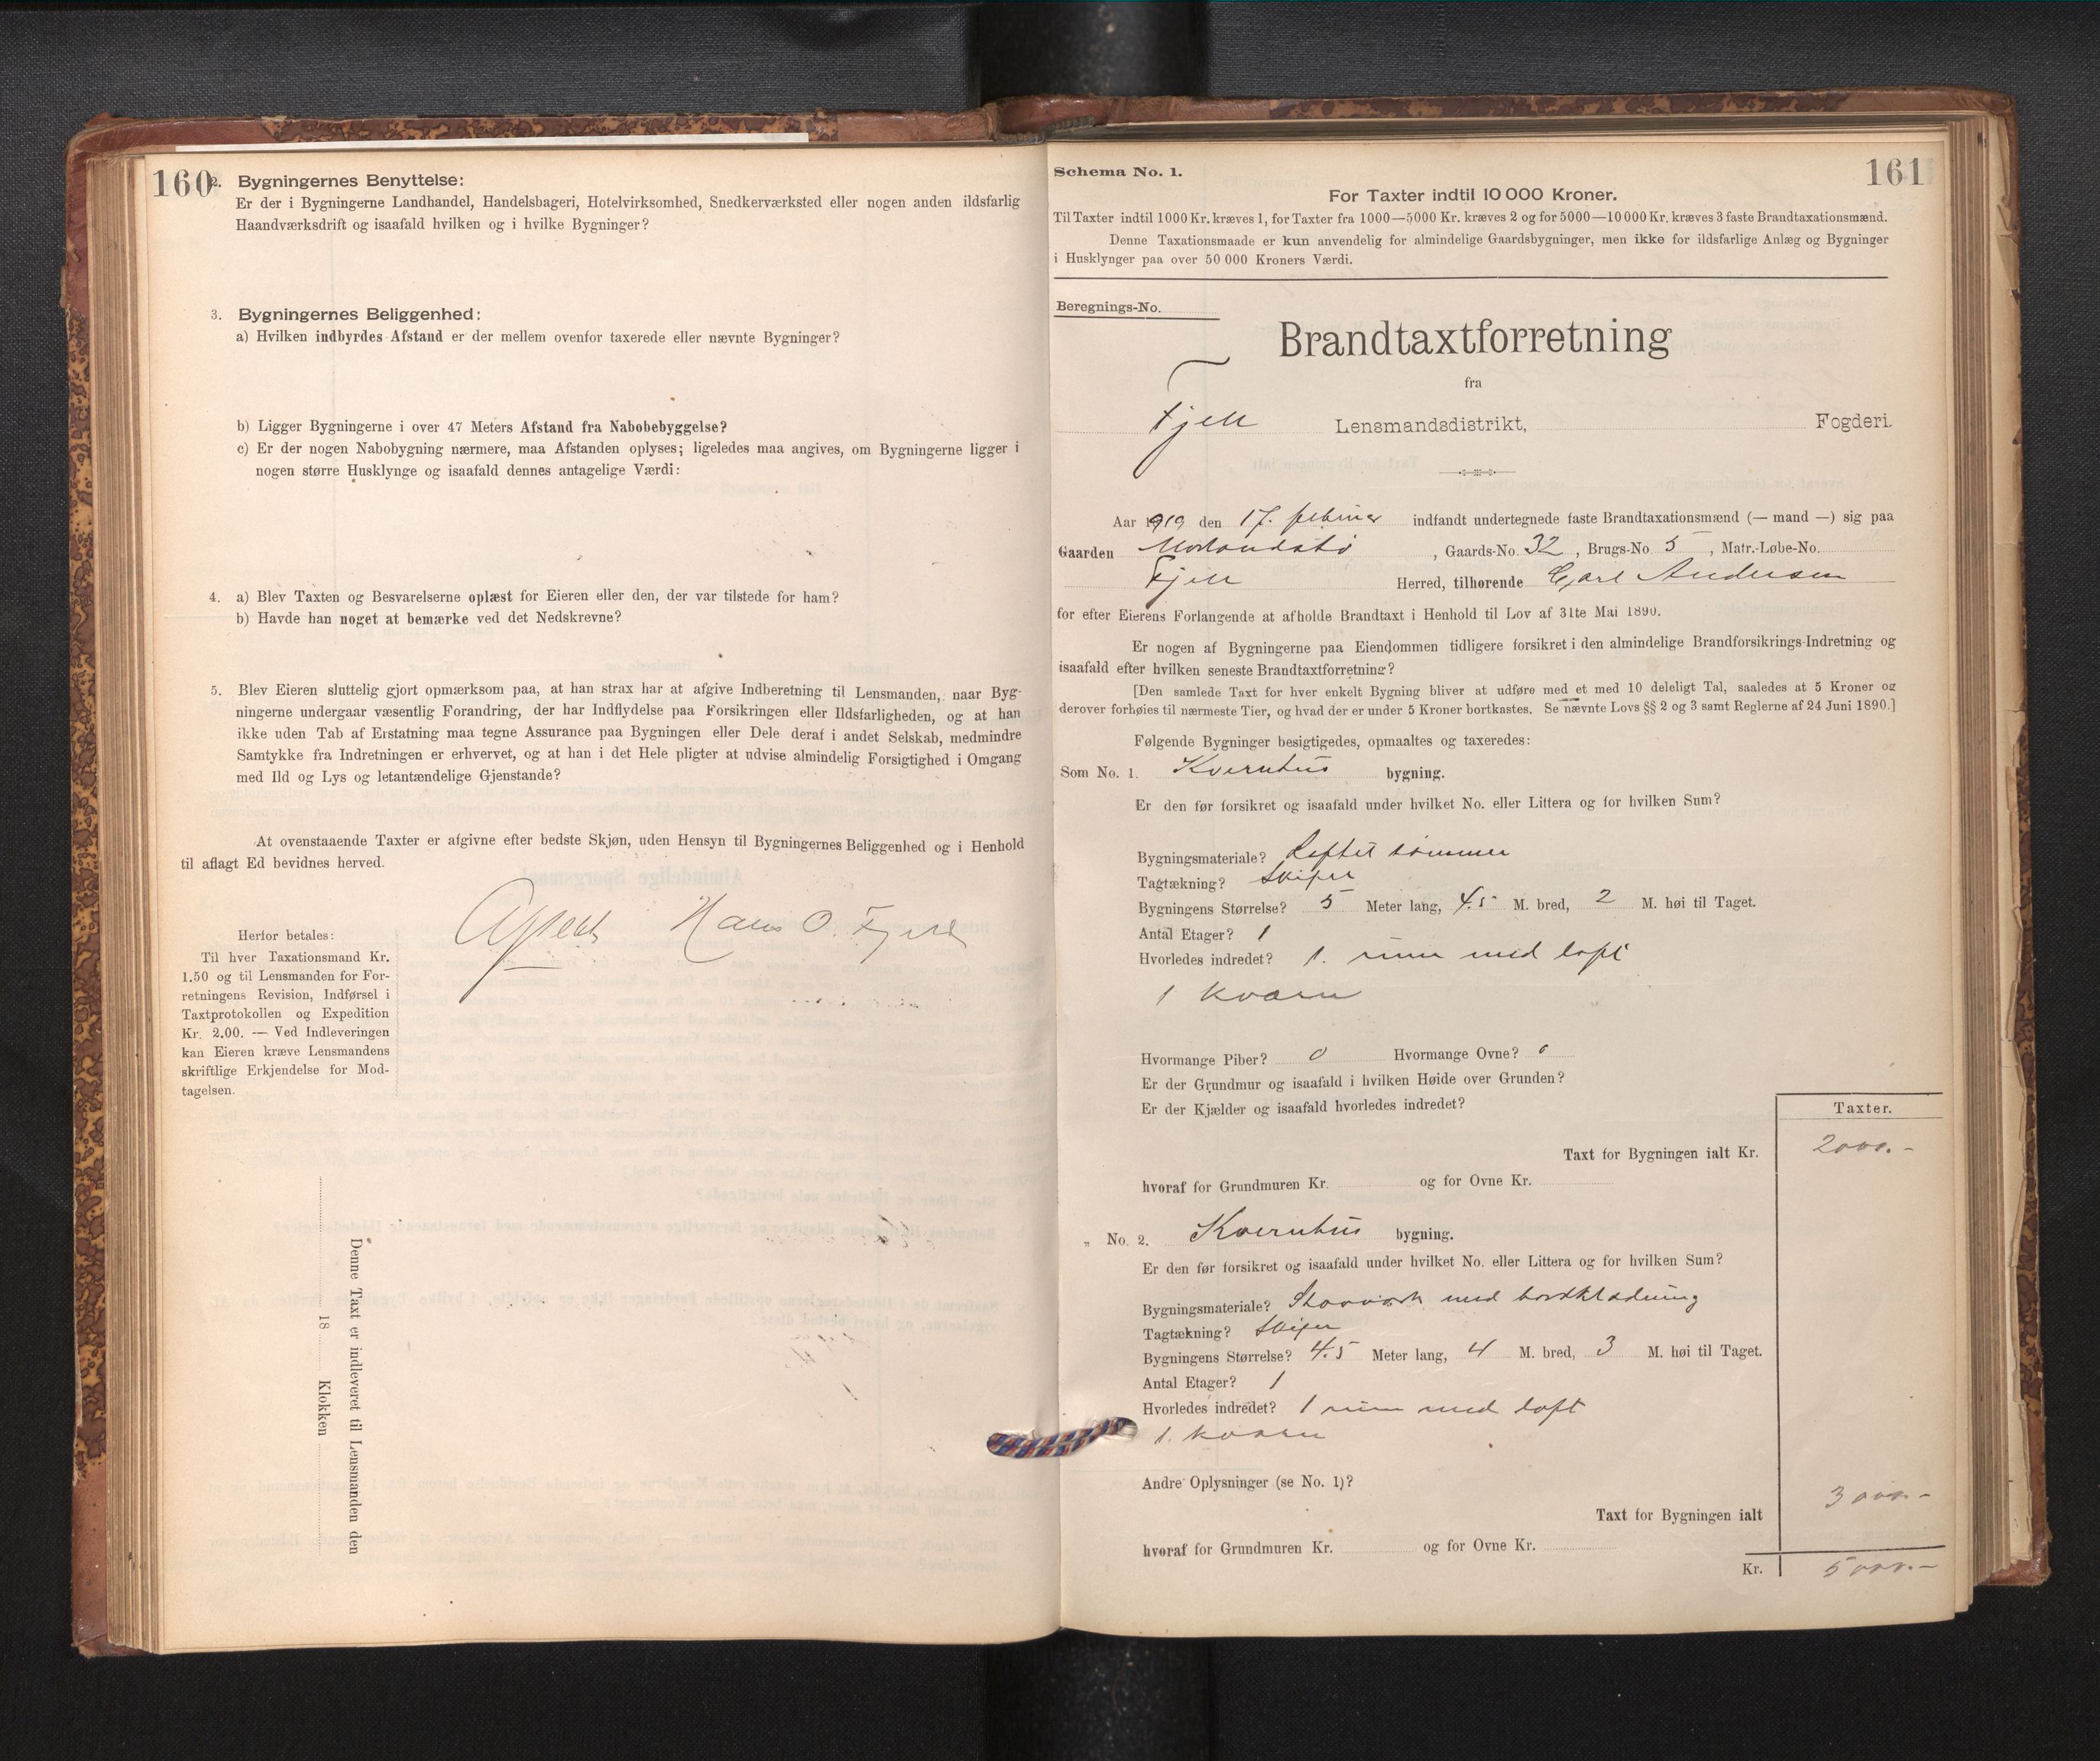 160
2. Bygningernes Benyttelse:
Er der i Bygningerne Landhandel, Handelsbageri, Hotelvirksomhed, Snedkerværksted eller nogen anden ildsfarlig
Haandværksdrift og isaafald hvilken og i hvilke Bygninger?
3. Bygningernes Beliggenhed:
a) Hvilken indbyrdes Afstand er der mellem ovenfor taxerede eller nævnte Bygninger?
b) Ligger Bygningerne i over 47 Meters Afstand fra Nabobebyggelse?
c) Er der nogen Nabobygning nærmere, maa Afstanden oplyses; ligeledes maa angives, om Bygningerne ligger i
nogen større Husklynge og isaafald dennes antagelige Værdi:
4. a) Blev Taxten og Besvarelserne oplæst for Eieren eller den, der var tilstede for ham?
b) Havde han noget at bemærke ved det Nedskrevne?
5. Blev Eieren sluttelig gjort opmærksom paa, at han strax har at afgive Indberetning til Lensmanden, naar Byg-
ningerne undergaar væsentlig Forandring, der har Indflydelse paa Forsikringen eller Ildsfarligheden, og at han
ikke uden Tab af Erstatning maa tegne Assurance paa Bygningen eller Dele deraf i andet Selskab, medmindre
Samtykke fra Indretningen er erhvervet, og at han i det Hele pligter at udvise almindelig Forsigtighed i Omgang
med Ild og Lys og letantændelige Gjenstande?
At ovenstaaende Taxter er afgivne efter bedste Skjøn, uden Hensyn til Bygningernes Beliggenhed og i Henhold
til aflagt Ed bevidnes herved.
Hans O. Fjell
Herfor betales:
Til hver Taxationsmand Kr.
1.50 og til Lensmanden for For-
retningens Revision, Indførsel i
Taxtprotokollen og Expedition
Kr. 2.00. — Ved Indleveringen
kan Eieren kræve Lensmandens
skriftlige Erkjendelse for Mod-
tagelsen.
Denne Taxt er indleveret til Lensmanden den
18 Klokken
161
Schema No. 1.
For Taxter indtil 10 000 Kroner.
Til Taxter indtil 1000 Kr. kræves 1, for Taxter fra 1000—5000 Kr. kræves 2 og for 5000—10000 Kr. kræves 3 faste Brandtaxationsmænd.
Denne Taxationsmaade er kun anvendelig for almindelige Gaardsbygninger, men ikke for ildsfarlige Anlæg og Bygninger
i Husklynger paa over 50 000 Kroners Værdi.
Beregnings-No.
Brandtaxtforretning
fra
Fjell Lensmandsdistrikt, Fogderi.
Aar 1919 den 17. februar indfandt undertegnede faste Brandtaxationsmænd (— mand —) sig paa
Gaarden Morlandstø, Gaards-No. 32, Brugs-No. 5, Matr.-Løbe-No.
Fjell Herred, tilhørende Carl Andersen
for efter Eierens Forlangende at afholde Brandtaxt i Henhold til Lov af 31te Mai 1890.
Er nogen af Bygningerne paa Eiendommen tidligere forsikret i den almindelige Brandforsikrings-Indretning og
isaafald efter hvilken seneste Brandtaxtforretning?
[Den samlede Taxt for hver enkelt Bygning bliver at udføre med et med 10 deleligt Tal, saaledes at 5 Kroner og
derover forhøies til nærmeste Tier, og hvad der er under 5 Kroner bortkastes. Se nævnte Lovs §§ 2 og 3 samt Reglerne af 24 Juni 1890.]
Følgende Bygninger besigtigedes, opmaaltes og taxeredes:
Som No. 1. Kvernhus bygning.
Er den før forsikret og isaafald under hvilket No. eller Littera og for hvilken Sum?
Bygningsmateriale? Laftet tømmer
Tagtækning? Skifer
Bygningens Størrelse? 5 Meter lang, 4.5 M. bred, 2 M. høi til Taget.
Antal Etager? 1
Hvorledes indredet? 1. rum med loft
1 kværn
Hvormange Piber? 0 Hvormange Ovne? 0
Er der Grundmur og isaafald i hvilken Høide over Grunden?
Er der Kjælder og isaafald hvorledes indredet?
Taxter.
Taxt for Bygningen ialt Kr. 2000.-
hvoraf for Grundmuren Kr. og for Ovne Kr.
„ No. 2. Kvernhus bygning.
Er den før forsikret og isaafald under hvilket No. eller Littera og for hvilken Sum?
Bygningsmateriale? Stavværk med bordklædning
Tagtækning? Skifer
Bygningens Størrelse? 4.5 Meter lang, 4 M. bred, 3 M. høi til Taget.
Antal Etager? 1
Hvorledes indredet? 1 rum med loft
1. kværn
Andre Oplysninger (se No. 1)?
Taxt for Bygningen ialt 3000.-
hvoraf for Grundmuren Kr. og for Ovne Kr.
Kr. 5000.-